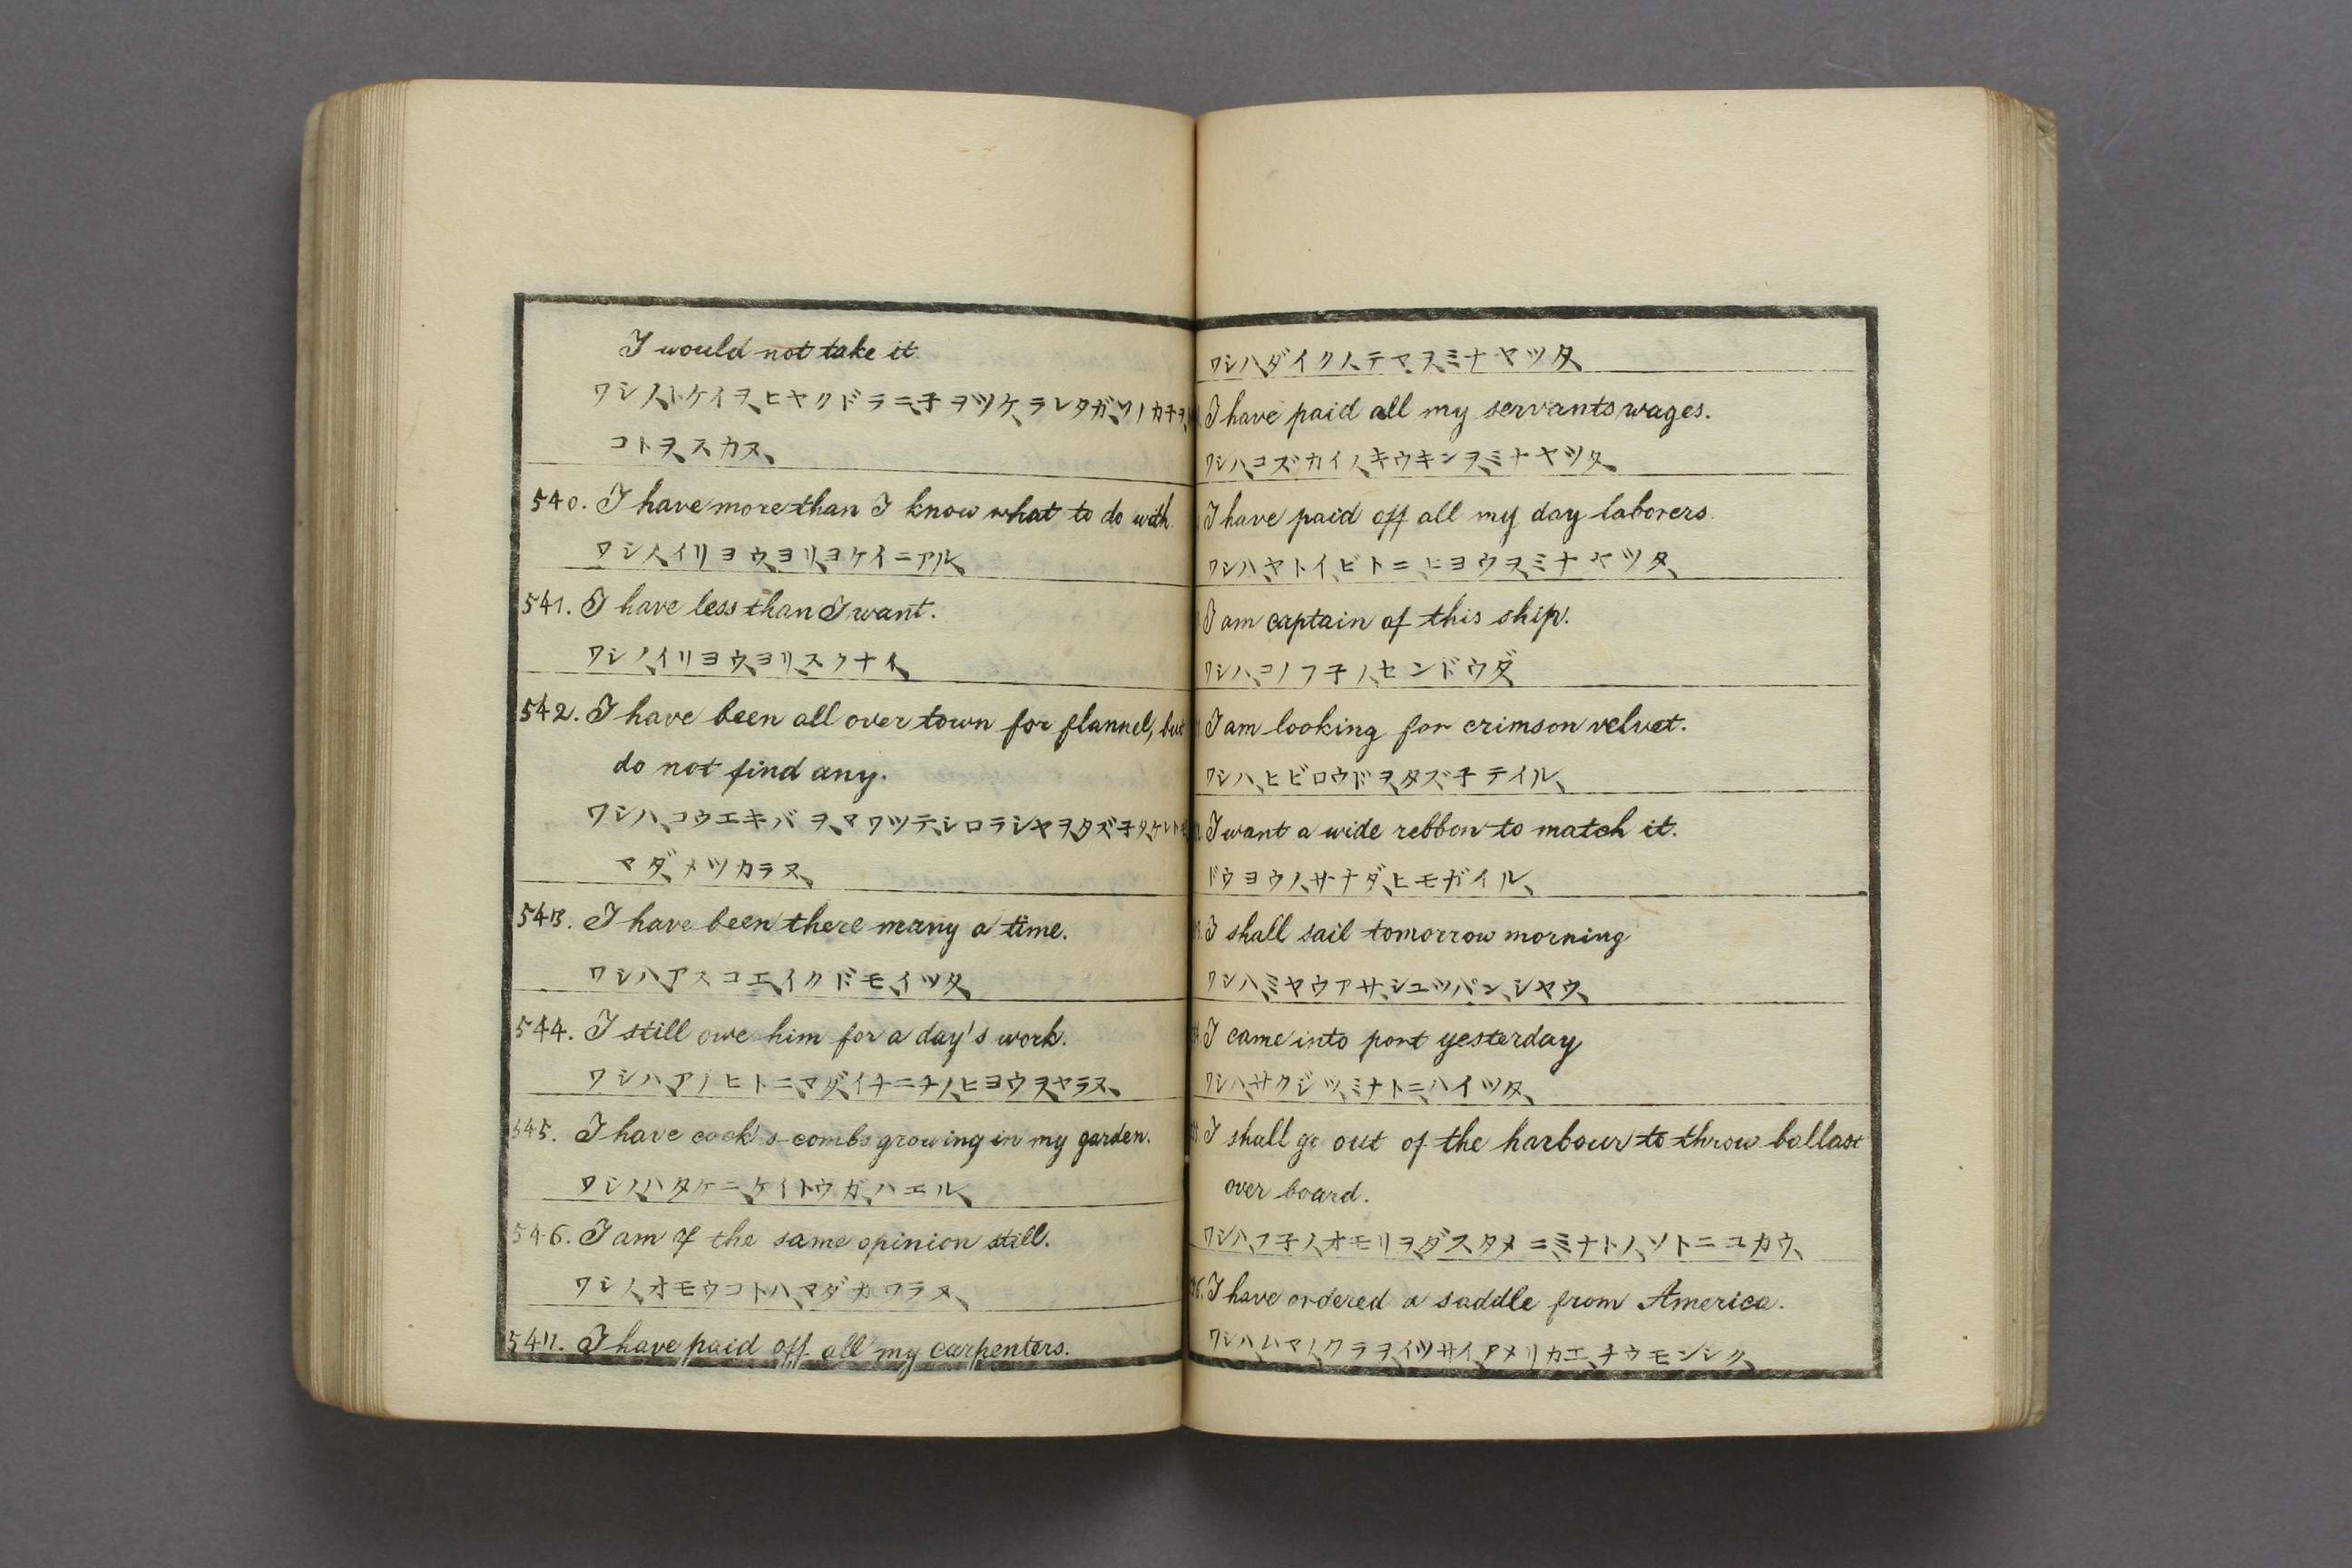 I would not take it
ワシノ、トケイヲ、ヒヤクドラニ、子ヲツケ、ラレタガ、ソノカチヲ、
コトヲ、スカヌ、
540. I have more than I know what to do with.
ワシノ、イリヨウ、ヨリ、ヨケイニアル、
541. I have less than I want.
ワシノ、イリヨウ、ヨリ、スクナイ、
542. I have been all over town for flannel, but
do not find any.
ワシハ、コウエキバヲ、マワツテ、シロラシヤヲ、タズ子タ、ケレトモ
マダ、メツカラヌ、
543. I have been there many a time.
ワシハ、アスコエ、イクドモ、イツタ、
544. I still owe him for a day's work.
ワシハ、アノヒトニ、マダ、イチニチノ、ヒヨウヲ、ヤラヌ、
545. I have cook's-combs growing in my garden.
ワシノ、ハタケニ、ケイトウガ、ハエル、
546. I am of the same opinion still.
ワシノ、オモウコトハ、マダカワラヌ、
547. I have paid off all my carpenters.
ワシハ、ダイクノ、テマ、ヲ、ミナヤツタ、
I have paid all my servants wages.
ワシハ、コズカイノ、キウキンヲ、ミナヤツタ、
I have paid off all my day laborers.
ワシハ、ヤトイ、ビトニヒヨウヲ、ミナヤツタ、
I am captain of this ship.
ワシハ、コノフ子ノ、センドウダ、
I am looking for crimson velvet.
ワシハ、ヒビロウドヲ、タズ子テイル、
I want a wide rebbon to match it.
ドウヨウノ、サナダ、ヒモガイル、
I shall sail tomorrow morning
ワシハ、ミヤウアサ、シユツパン、シヤウ、
I came into port yesterday
ワシハ、サクジツ、ミナトニ、ハイツタ、
I shall go out of the harbour to throw ballast
over board.
ワシハ、フ子ノ、オモリヲ、ダスタメニ、ミナトノ、ソトニユカウ、
I have ordered a saddle from America.
ワシハ、ムマノ、クラヲ、イツサイ、アメリカエ、チウモンシタ、